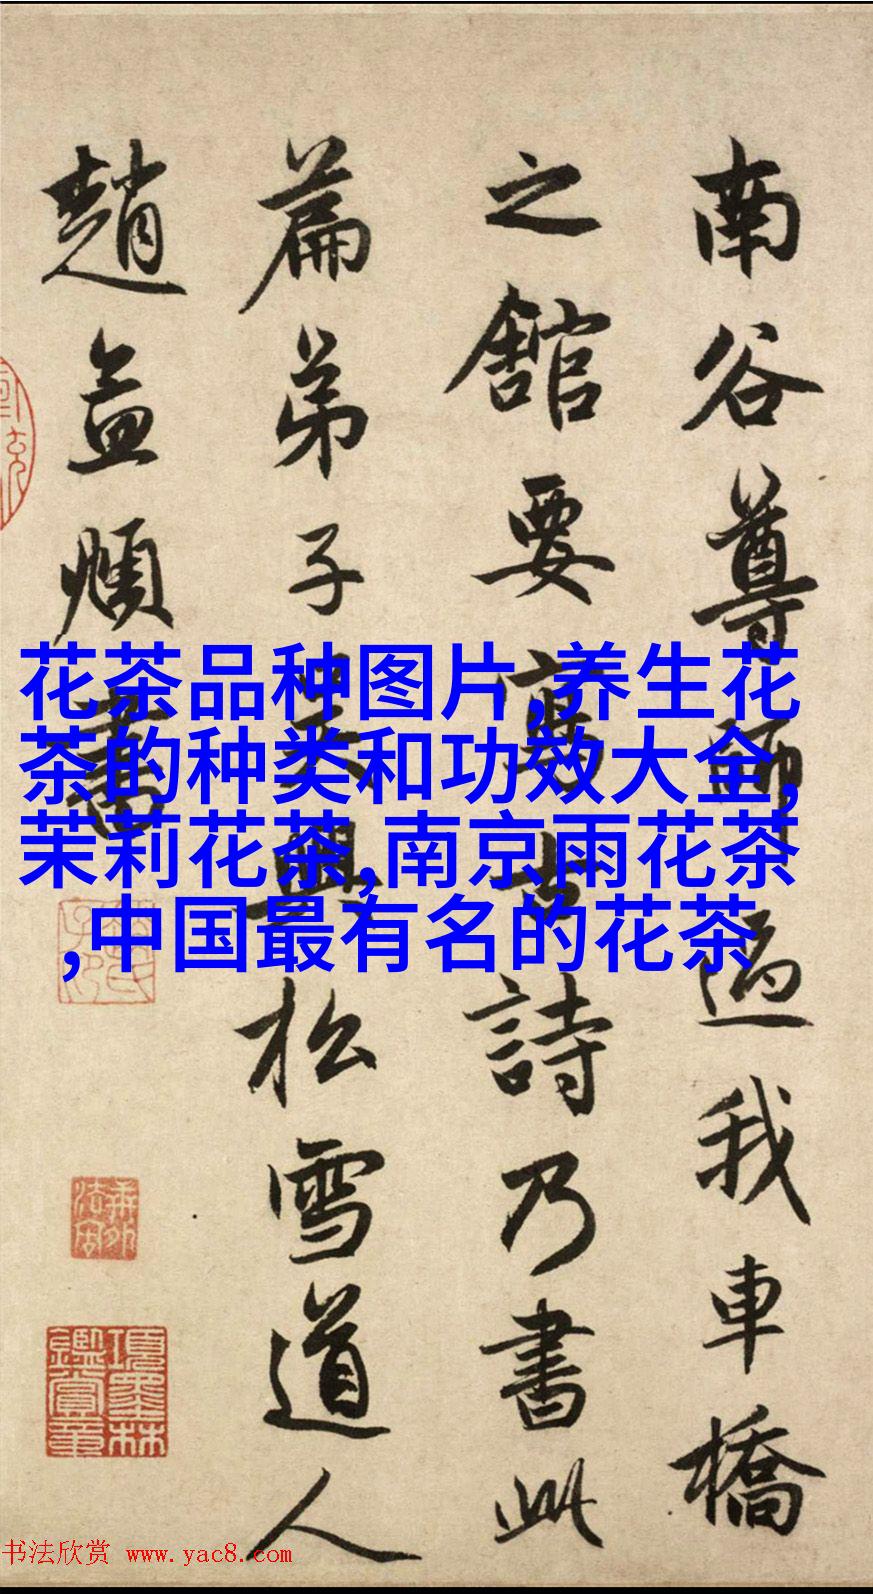 南谷尊師過我車橋
之舘要寫古詩乃書此
篇弟子吳興松雪道人
趙孟頫書
花茶品种图片,养生花
茶的种类和功效大全,
茉莉花茶,南京雨花茶
,中国最有名的花茶
項墨林
鑑賞章
书法欣赏 www.yac8.com